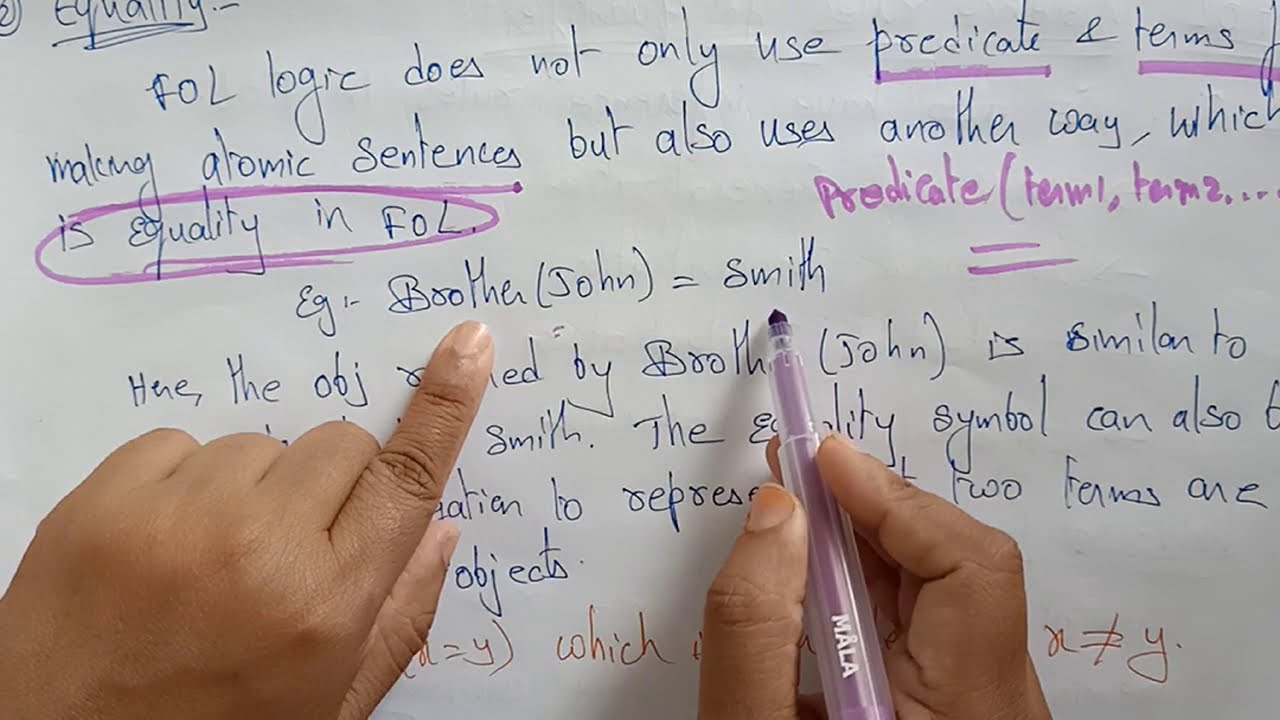 Equality:-
FOL logic does not only use predicate & terms
making atomic sentences but also uses another way, which
is equality in FOL.
Predicate (term1, term2....
Eg:- Brother (John) = Smith
Here, the obj by (John) is similar to
Smith. The symbol can also
to two terms are
objects.
x=y) which x ≠ y.
MÅLA